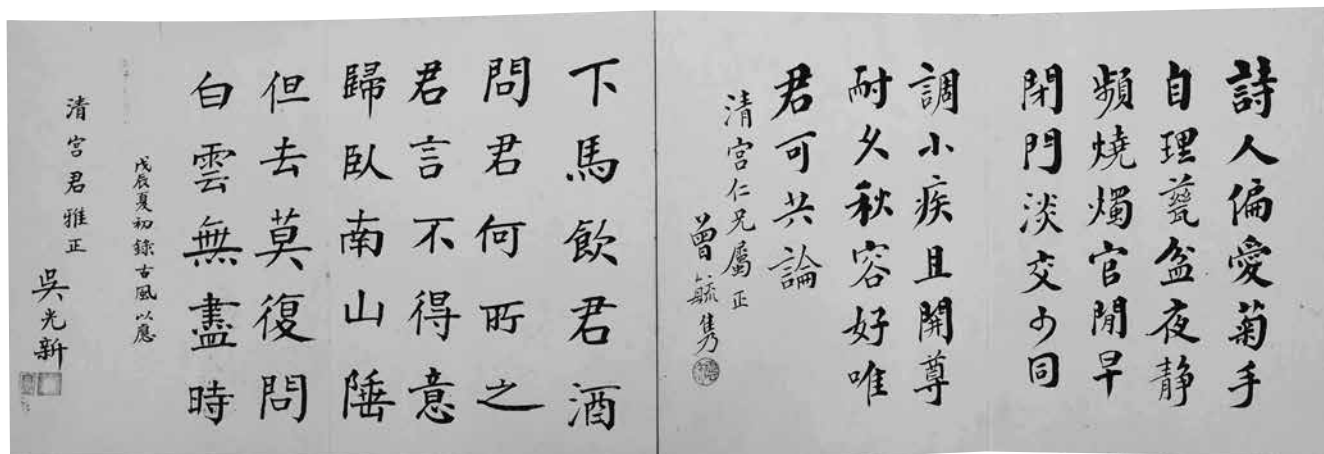 詩人偏愛菊手
自理甆盆夜靜
頻燒燭官閒早
閉門淡交少同
調小疾且開尊
耐久秋容好唯
君可共論
清宮仁兄屬正
曾毓雋
下馬飲君酒
問君何所之
君言不得意
歸臥南山陲
但去莫復問
白雲無盡時
戊辰夏初錄古風以應
清宮君雅正
吳光新